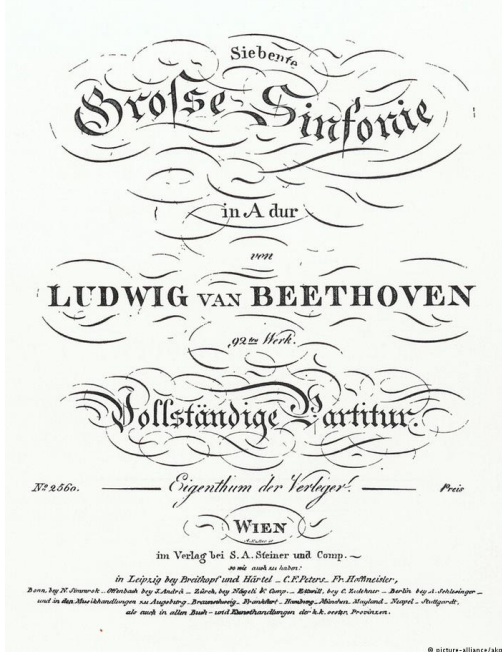 Siebente
Grosse Sinfonie
in A dur
von
LUDWIG VAN BEETHOVEN
92tes Werk.
Vollständige Partitur.
No. 2560. Eigenthum der Verleger. Preis
WIEN
im Verlag bei S. A. Steiner und Comp.
so wie auch zu haben:
in Leipzig bey Breitkopf und Härtel _ C. F. Peters _ Fr. Hoffmeister,
Bonn, bey N. Simrock _ Offenbach bey J. André _ Zürch, bey Nägeli & Comp. _ Eltvill, bey C. Zulehner _ Berlin bey A. Schlesinger _
und in den Musikhandlungen zu Augsburg _ Braunschweig _ Frankfurt _ Hamburg _ München _ Mayland _ Neapel _ Stuttgardt,
als auch in allen Buch- und Kunsthandlungen der k.k. oester. Provinzen.
© picture-alliance/akg